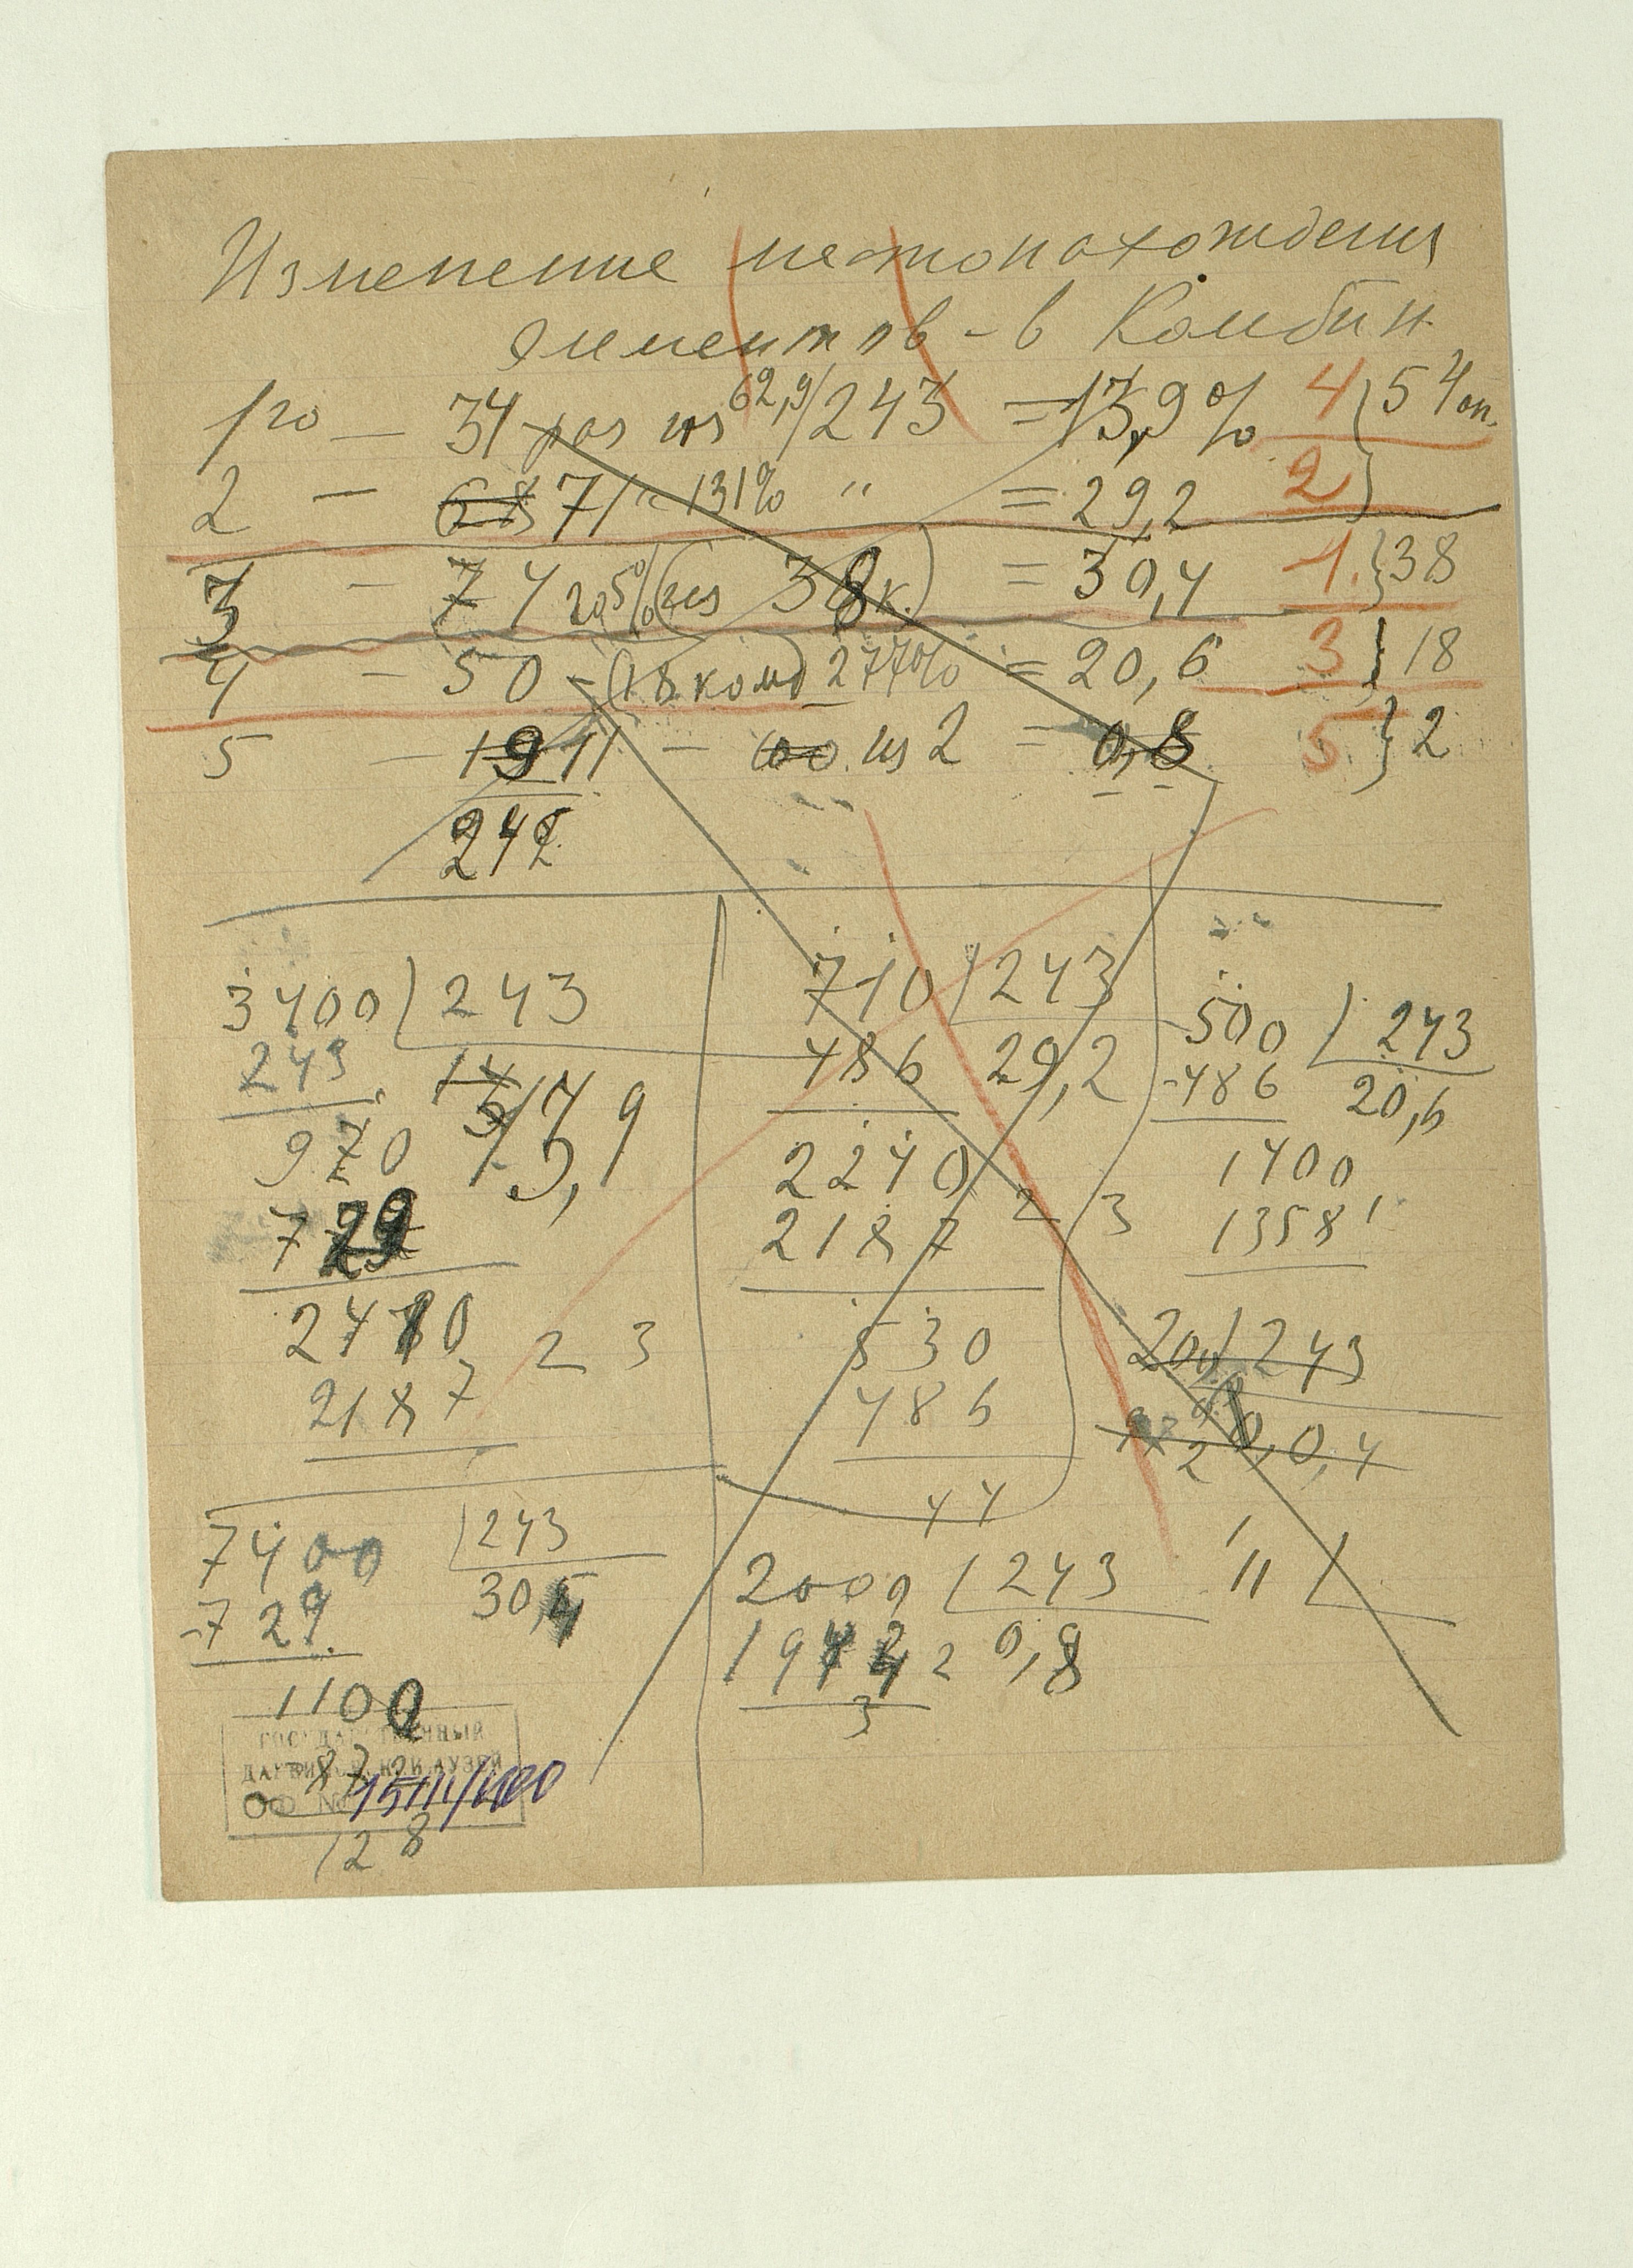 Изменение местонахождения
элементов - в Комбин.
1го — 34 раз из 62,9/243 = 13,9% 4 } 54 оп.
2 — 68 71 131% " = 29,2 2
3 — 74 205% (из 38 к.) = 30,4 1. } 38
4 — 50 - (18 комб 277% = 20,6 3 } 18
5 — 19 11 — из 2 = 0,8 5 } 2
242
3400 243
243
970 13,9
729
2410 2 3
2187
710 243
486 29,2
2240
2187 2 3
530
486
44
500 243
-486 20,6
1400
1358
200 243
0,4
7400 243
-729 30,4
1100
2000 243
1944 2 0,8
3
11
ГОСУДАРСТВЕННЫЙ
ДАРВИНОВСКИЙ МУЗЕЙ
ОФ №
128